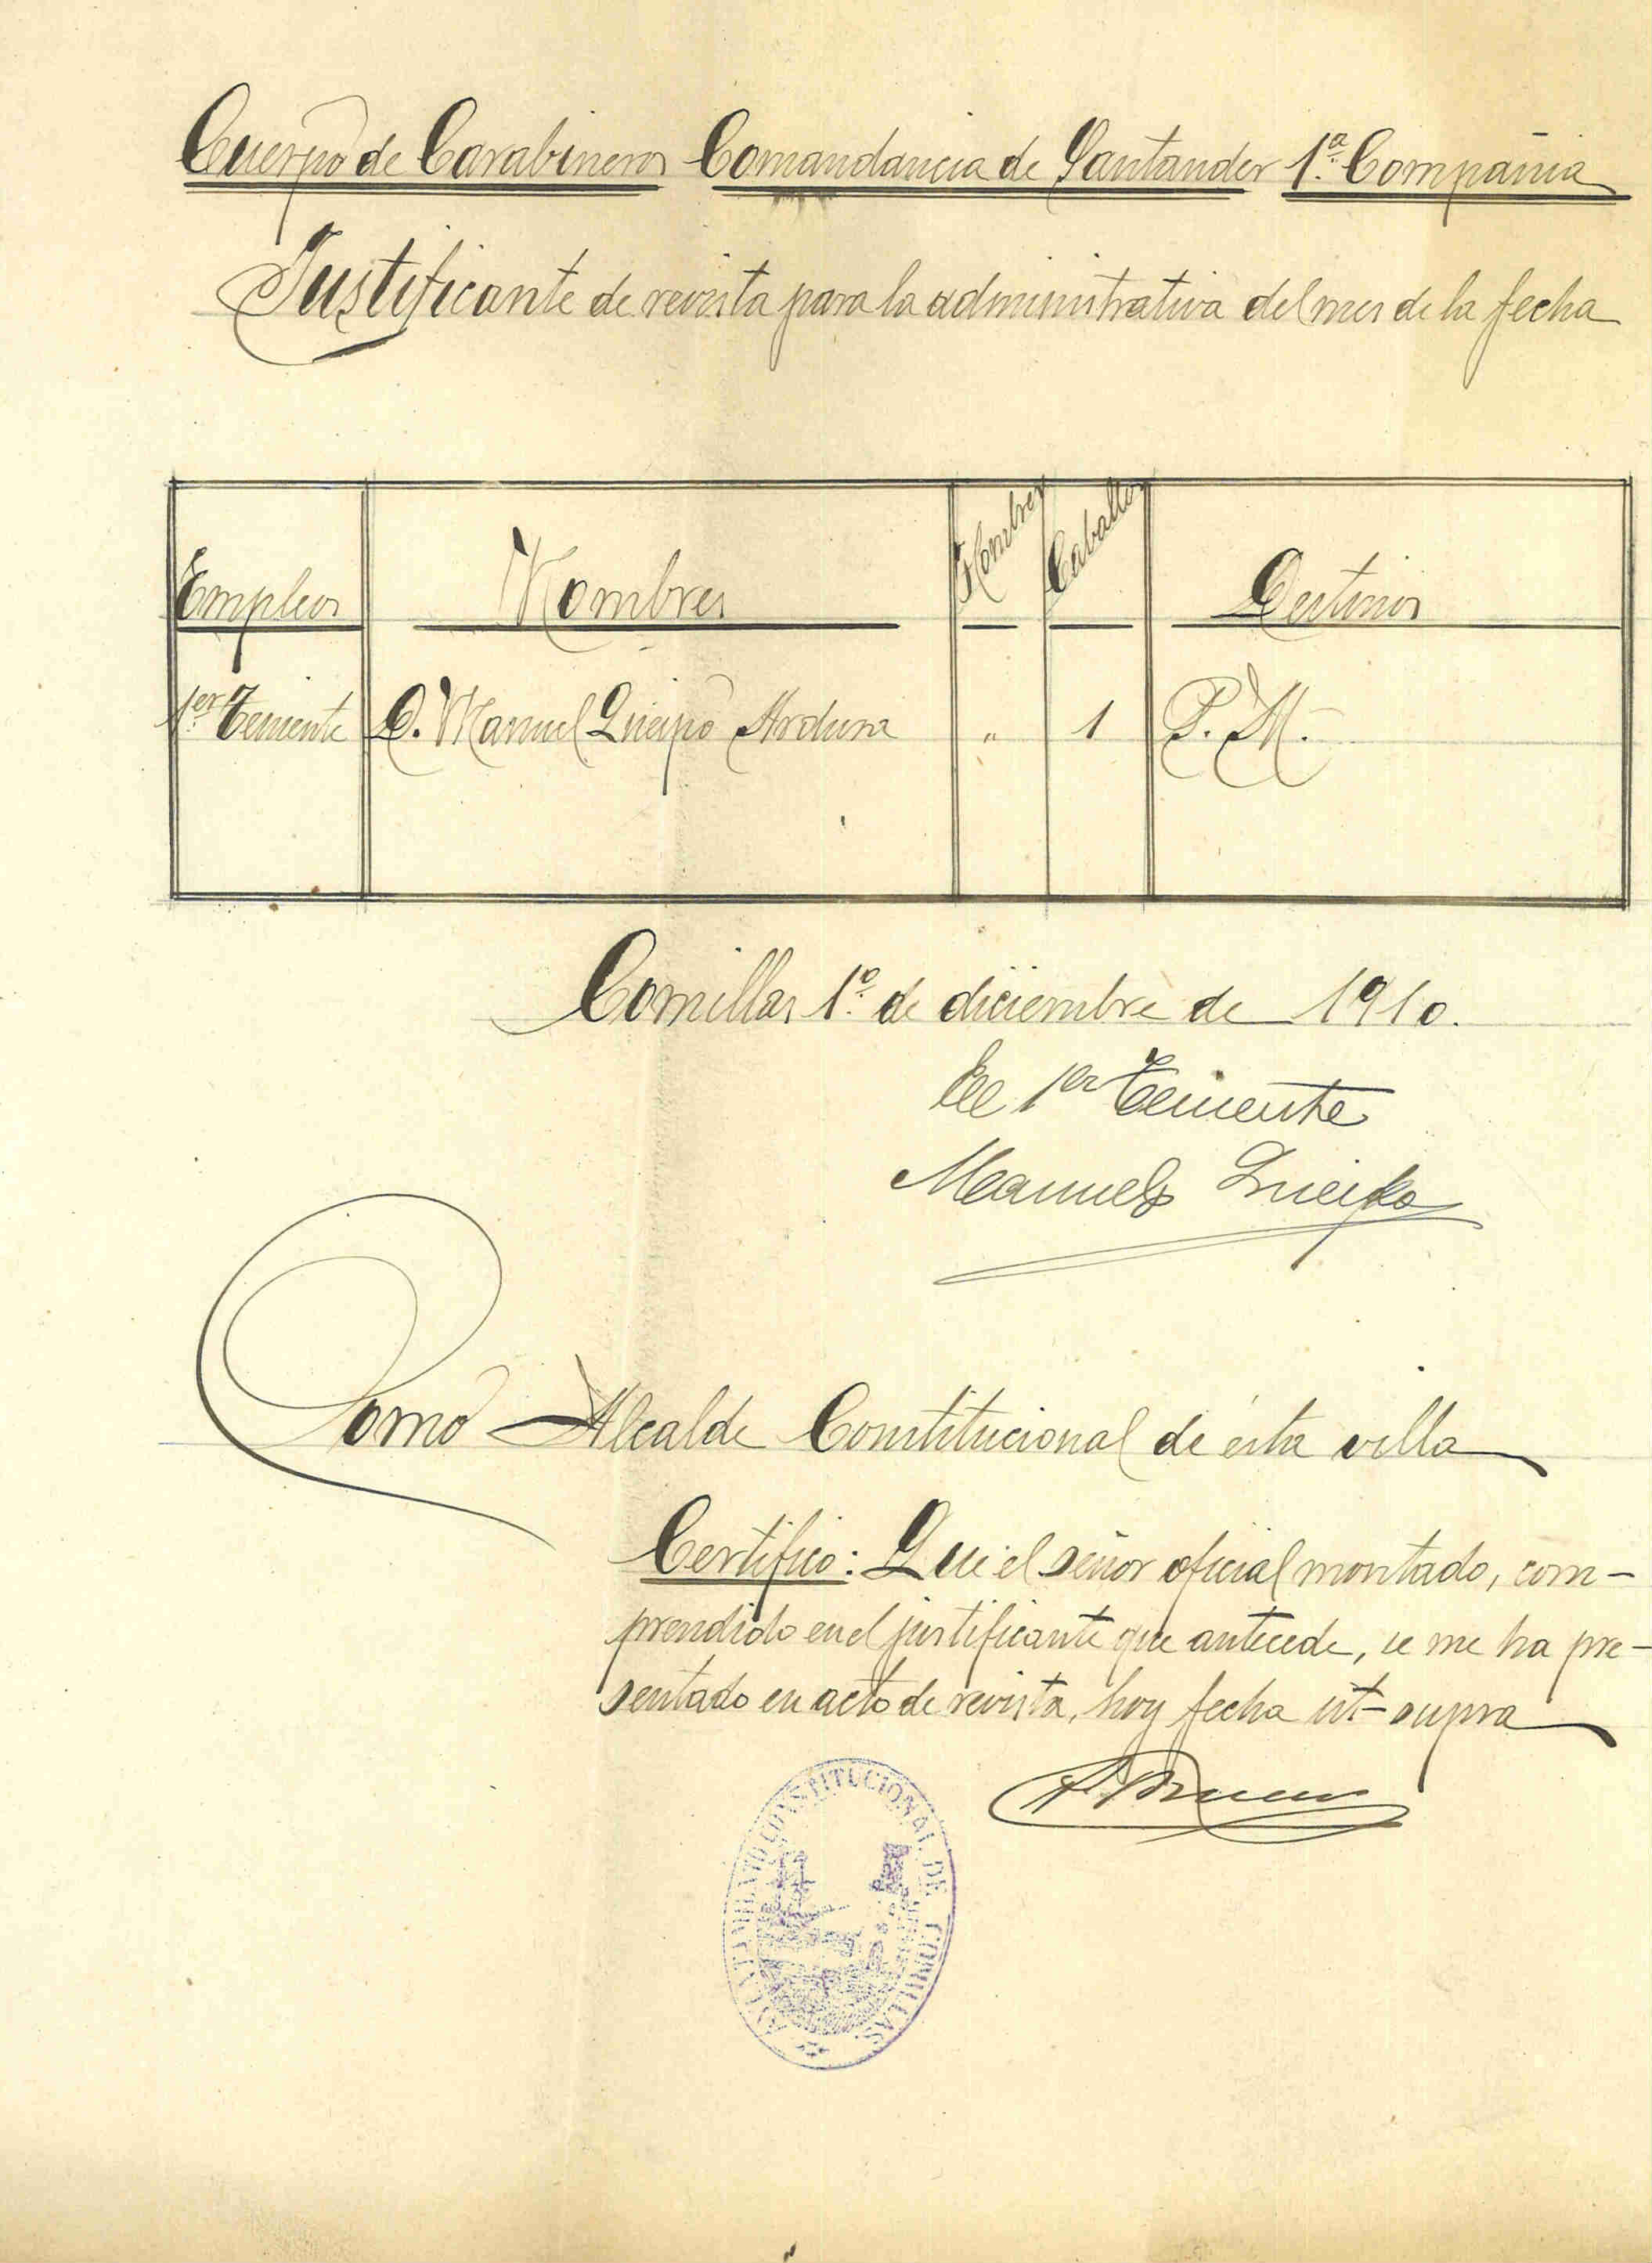 Cuerpo de Carabineros Comandancia de Santander 1ª Compañia
Justificante de revista para la administrativa del mes de la fecha
Empleos Nombres Hombres Caballos Destinos
1er Teniente D. Manuel Queipo Ardura " 1 P. M.
Comillas 1º de diciembre de 1910.
El 1er Teniente
Manuel Queipo
Como Alcalde Constitucional de ésta villa
Certifico: Que el señor oficial montado, com-
prendido en el justificante que antecede, se me ha pre-
sentado en acto de revista, hoy fecha ut-supra
AYUNTAMIENTO CONSTITUCIONAL DE COMILLAS